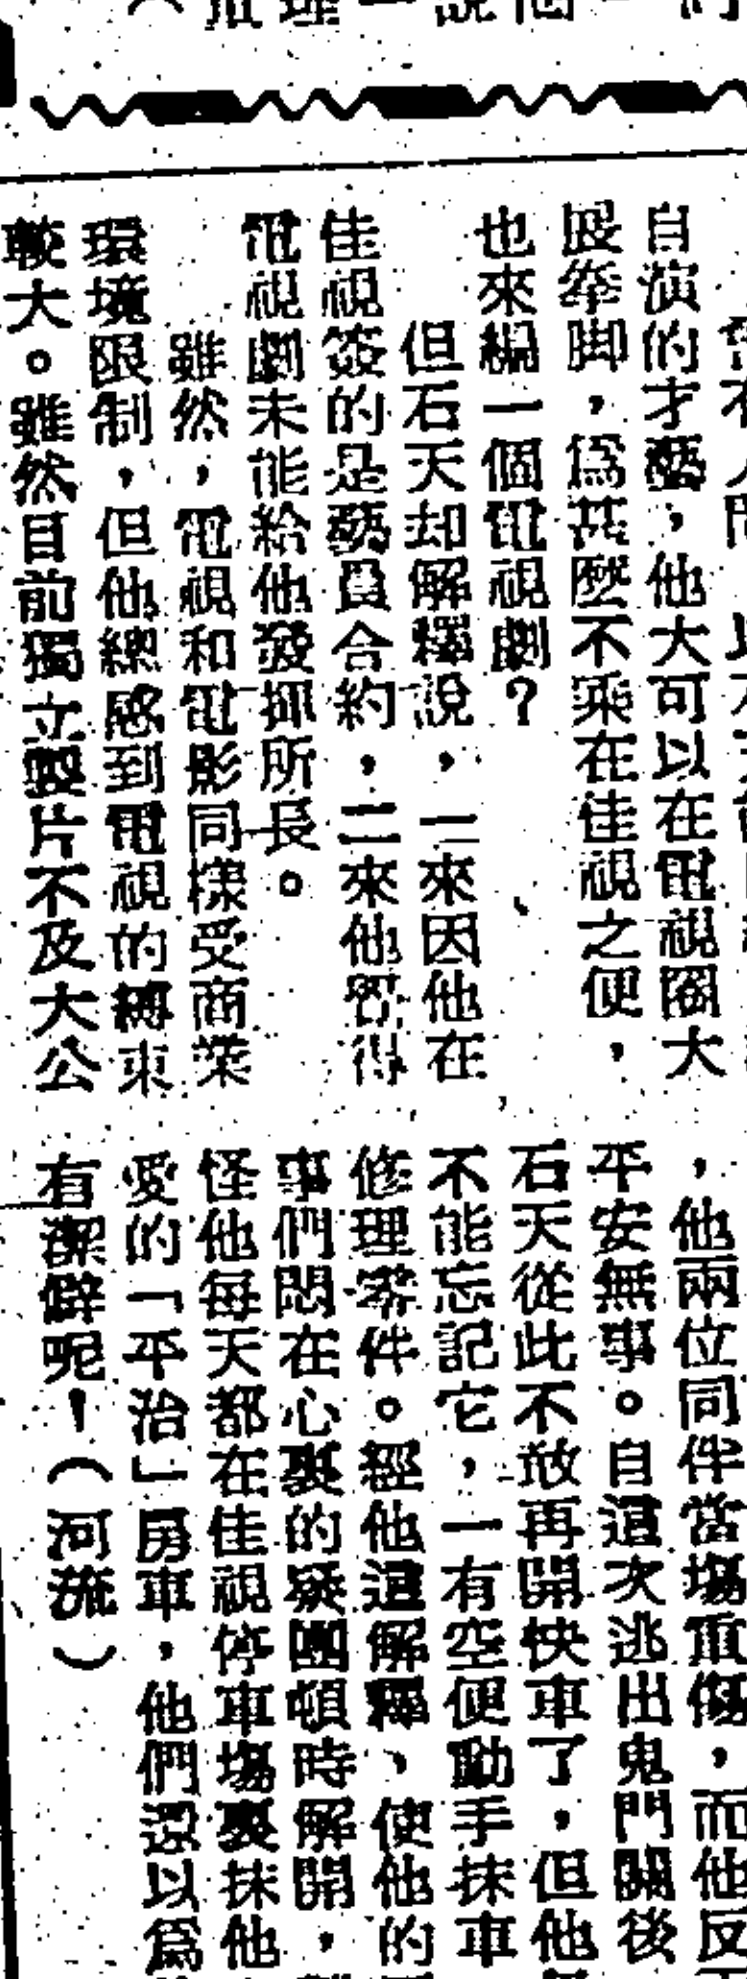 自演的才藝，他大可以在電視圈大
展拳脚，爲甚麼不乘在佳視之便，
也來編一個電視劇？
但石天却解釋說，一來因他在
佳視簽的是藝員合約，二來他習得
電視劇未能給他發揮所長。
雖然，電視和電影同樣受商業
環境限制，但他總感到電視的縛束
較大。雖然目前獨立製片不及大公
，他兩位同伴當塲重傷，而他反
平安無事。自這次逃出鬼門關後
石天從此不敢再開快車了，但他
不能忘記它，一有空便動手抹車
修理零件。經他這解釋、使他的
事們悶在心裏的疑團頓時解開，
怪他每天都在佳視停車塲裏抹他
愛的「平治」房車，他們還以爲
有潔僻呢！（河流）